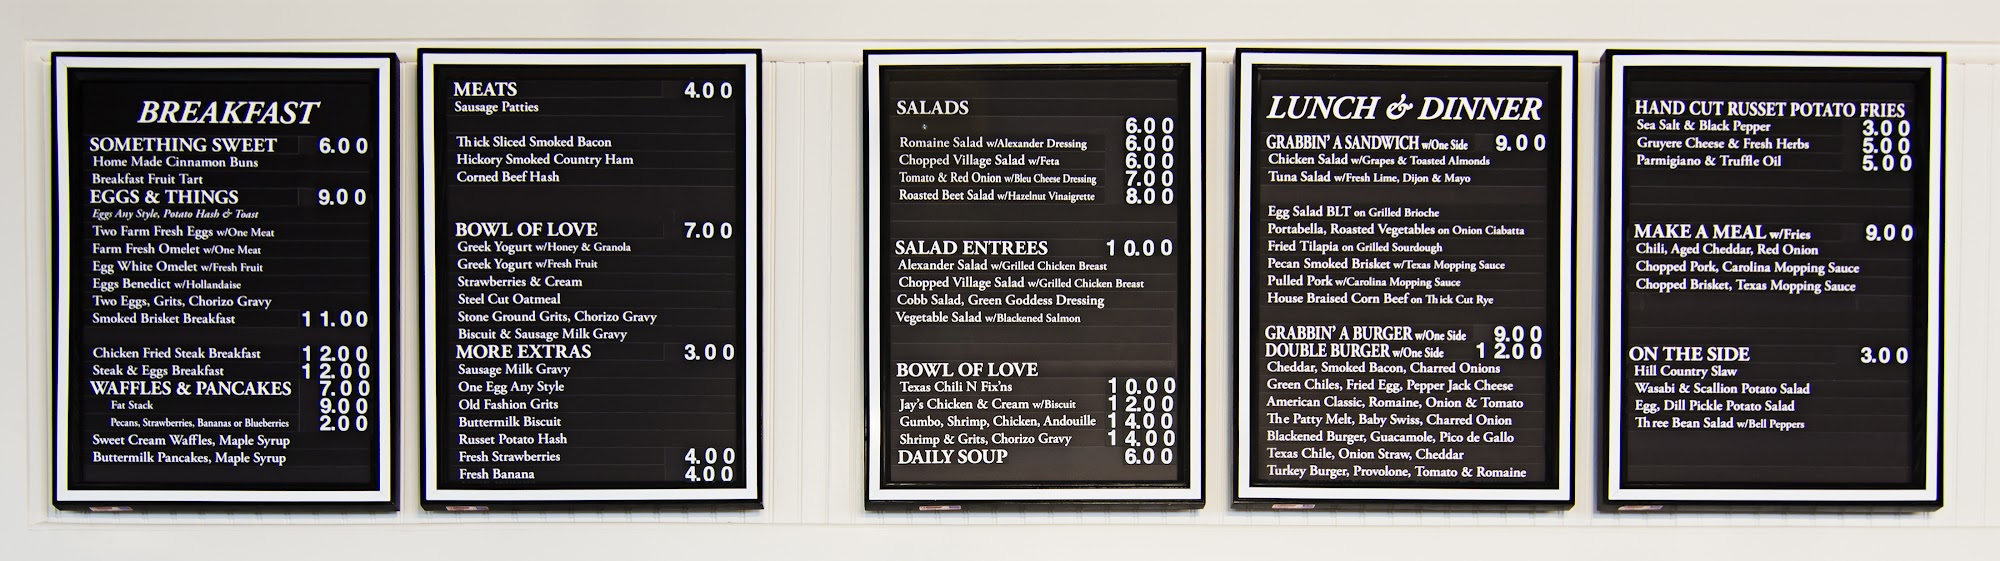 BREAKFAST
SOMETHING SWEET 6.00
Home Made Cinnamon Buns
Breakfast Fruit Tart
EGGS & THINGS 9.00
Eggs Any Style, Potato Hash & Toast
Two Farm Fresh Eggs w/One Meat
Farm Fresh Omelet w/One Meat
Egg White Omelet w/Fresh Fruit
Eggs Benedict w/Hollandaise
Two Eggs, Grits, Chorizo Gravy
Smoked Brisket Breakfast 11.00
Chicken Fried Steak Breakfast 12.00
Steak & Eggs Breakfast 12.00
WAFFLES & PANCAKES 7.00
Fat Stack 9.00
Pecans, Strawberries, Bananas or Blueberries 2.00
Sweet Cream Waffles, Maple Syrup
Buttermilk Pancakes, Maple Syrup
MEATS 4.00
Sausage Patties
Thick Sliced Smoked Bacon
Hickory Smoked Country Ham
Corned Beef Hash
BOWL OF LOVE 7.00
Greek Yogurt w/Honey & Granola
Greek Yogurt w/Fresh Fruit
Strawberries & Cream
Steel Cut Oatmeal
Stone Ground Grits, Chorizo Gravy
Biscuit & Sausage Milk Gravy
MORE EXTRAS 3.00
Sausage Milk Gravy
One Egg Any Style
Old Fashion Grits
Buttermilk Biscuit
Russet Potato Hash
Fresh Strawberries 4.00
Fresh Banana 4.00
SALADS
6.00
Romaine Salad w/Alexander Dressing 6.00
Chopped Village Salad w/Feta 6.00
Tomato & Red Onion w/Bleu Cheese Dressing 7.00
Roasted Beet Salad w/Hazelnut Vinaigrette 8.00
SALAD ENTREES 10.00
Alexander Salad w/Grilled Chicken Breast
Chopped Village Salad w/Grilled Chicken Breast
Cobb Salad, Green Goddess Dressing
Vegetable Salad w/Blackened Salmon
BOWL OF LOVE
Texas Chili N Fix'ns 10.00
Jay's Chicken & Cream w/Biscuit 12.00
Gumbo, Shrimp, Chicken, Andouille 14.00
Shrimp & Grits, Chorizo Gravy 14.00
DAILY SOUP 6.00
LUNCH & DINNER
GRABBIN' A SANDWICH w/One Side 9.00
Chicken Salad w/Grapes & Toasted Almonds
Tuna Salad w/Fresh Lime, Dijon & Mayo
Egg Salad BLT on Grilled Brioche
Portabella, Roasted Vegetables on Onion Ciabatta
Fried Tilapia on Grilled Sourdough
Pecan Smoked Brisket w/Texas Mopping Sauce
Pulled Pork w/Carolina Mopping Sauce
House Braised Corn Beef on Thick Cut Rye
GRABBIN' A BURGER w/One Side 9.00
DOUBLE BURGER w/One Side 12.00
Cheddar, Smoked Bacon, Charred Onions
Green Chiles, Fried Egg, Pepper Jack Cheese
American Classic, Romaine, Onion & Tomato
The Patty Melt, Baby Swiss, Charred Onion
Blackened Burger, Guacamole, Pico de Gallo
Texas Chile, Onion Straw, Cheddar
Turkey Burger, Provolone, Tomato & Romaine
HAND CUT RUSSET POTATO FRIES
Sea Salt & Black Pepper 3.00
Gruyere Cheese & Fresh Herbs 5.00
Parmigiano & Truffle Oil 5.00
MAKE A MEAL w/Fries 9.00
Chili, Aged Cheddar, Red Onion
Chopped Pork, Carolina Mopping Sauce
Chopped Brisket, Texas Mopping Sauce
ON THE SIDE 3.00
Hill Country Slaw
Wasabi & Scallion Potato Salad
Egg, Dill Pickle Potato Salad
Three Bean Salad w/Bell Peppers